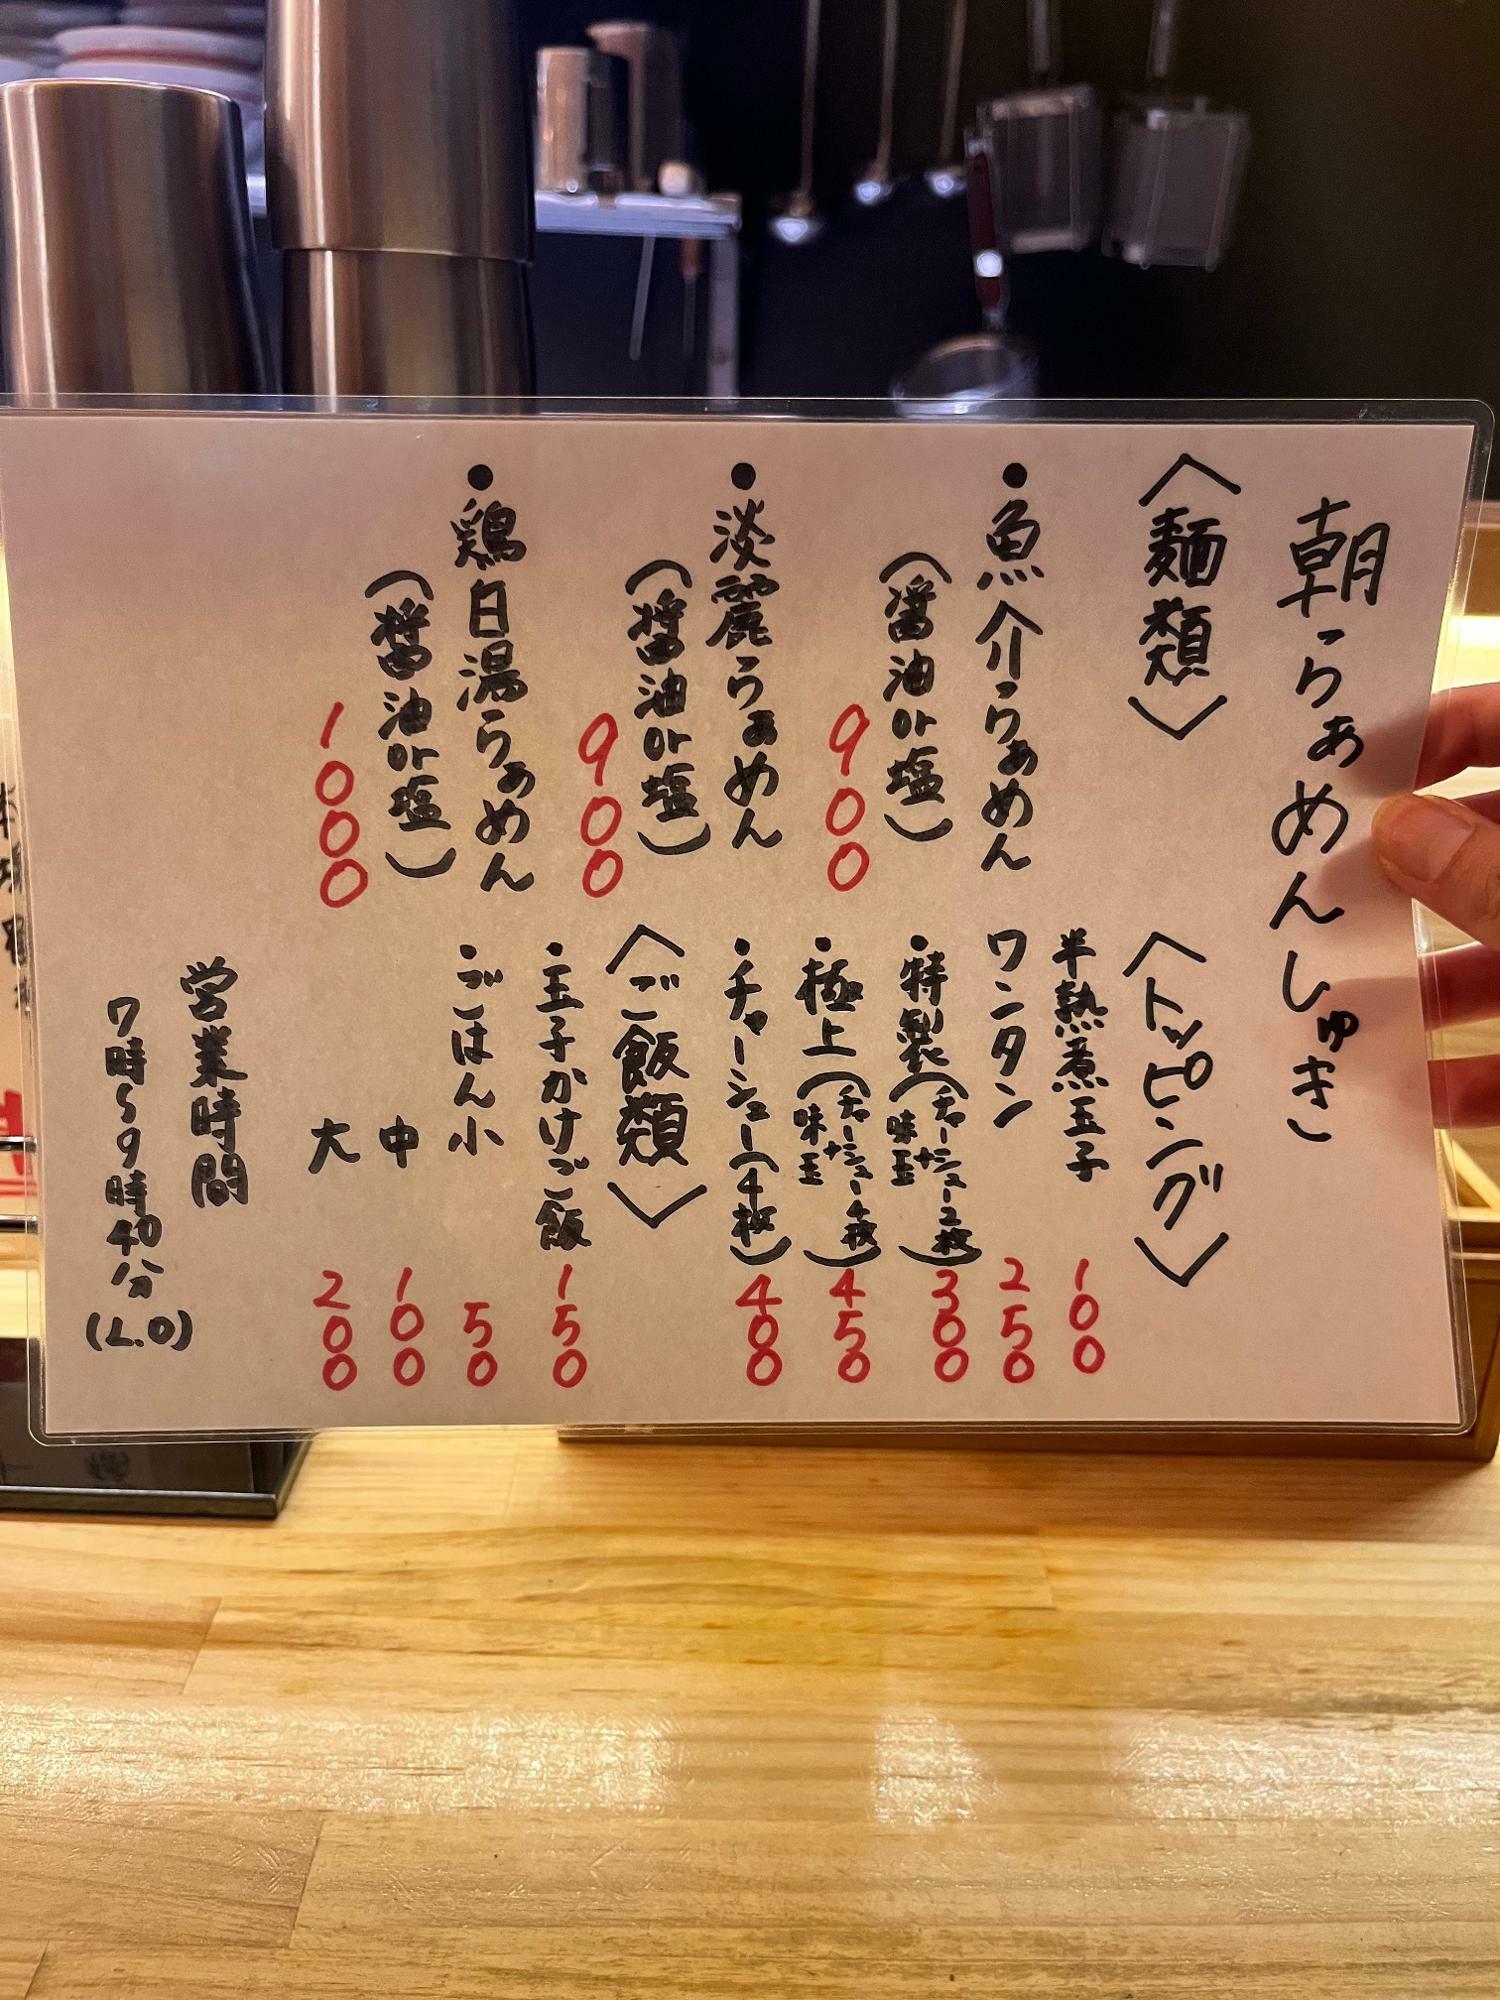 朝らぁめんしゅき
〈麺類〉
•魚介らぁめん
(醤油or塩)
900
•淡麗らぁめん
(醤油or塩)
900
•鶏白湯らぁめん
(醤油or塩)
1000
〈トッピング〉
半熟煮玉子 100
ワンタン 250
•特製(チャーシュー2枚+味玉) 300
•極上(チャーシュー4枚+味玉) 450
•チャーシュー(4枚) 400
〈ご飯類〉
•玉子かけご飯 150
•ごはん小 50
中 100
大 200
営業時間
7時〜9時40分
(L.O)